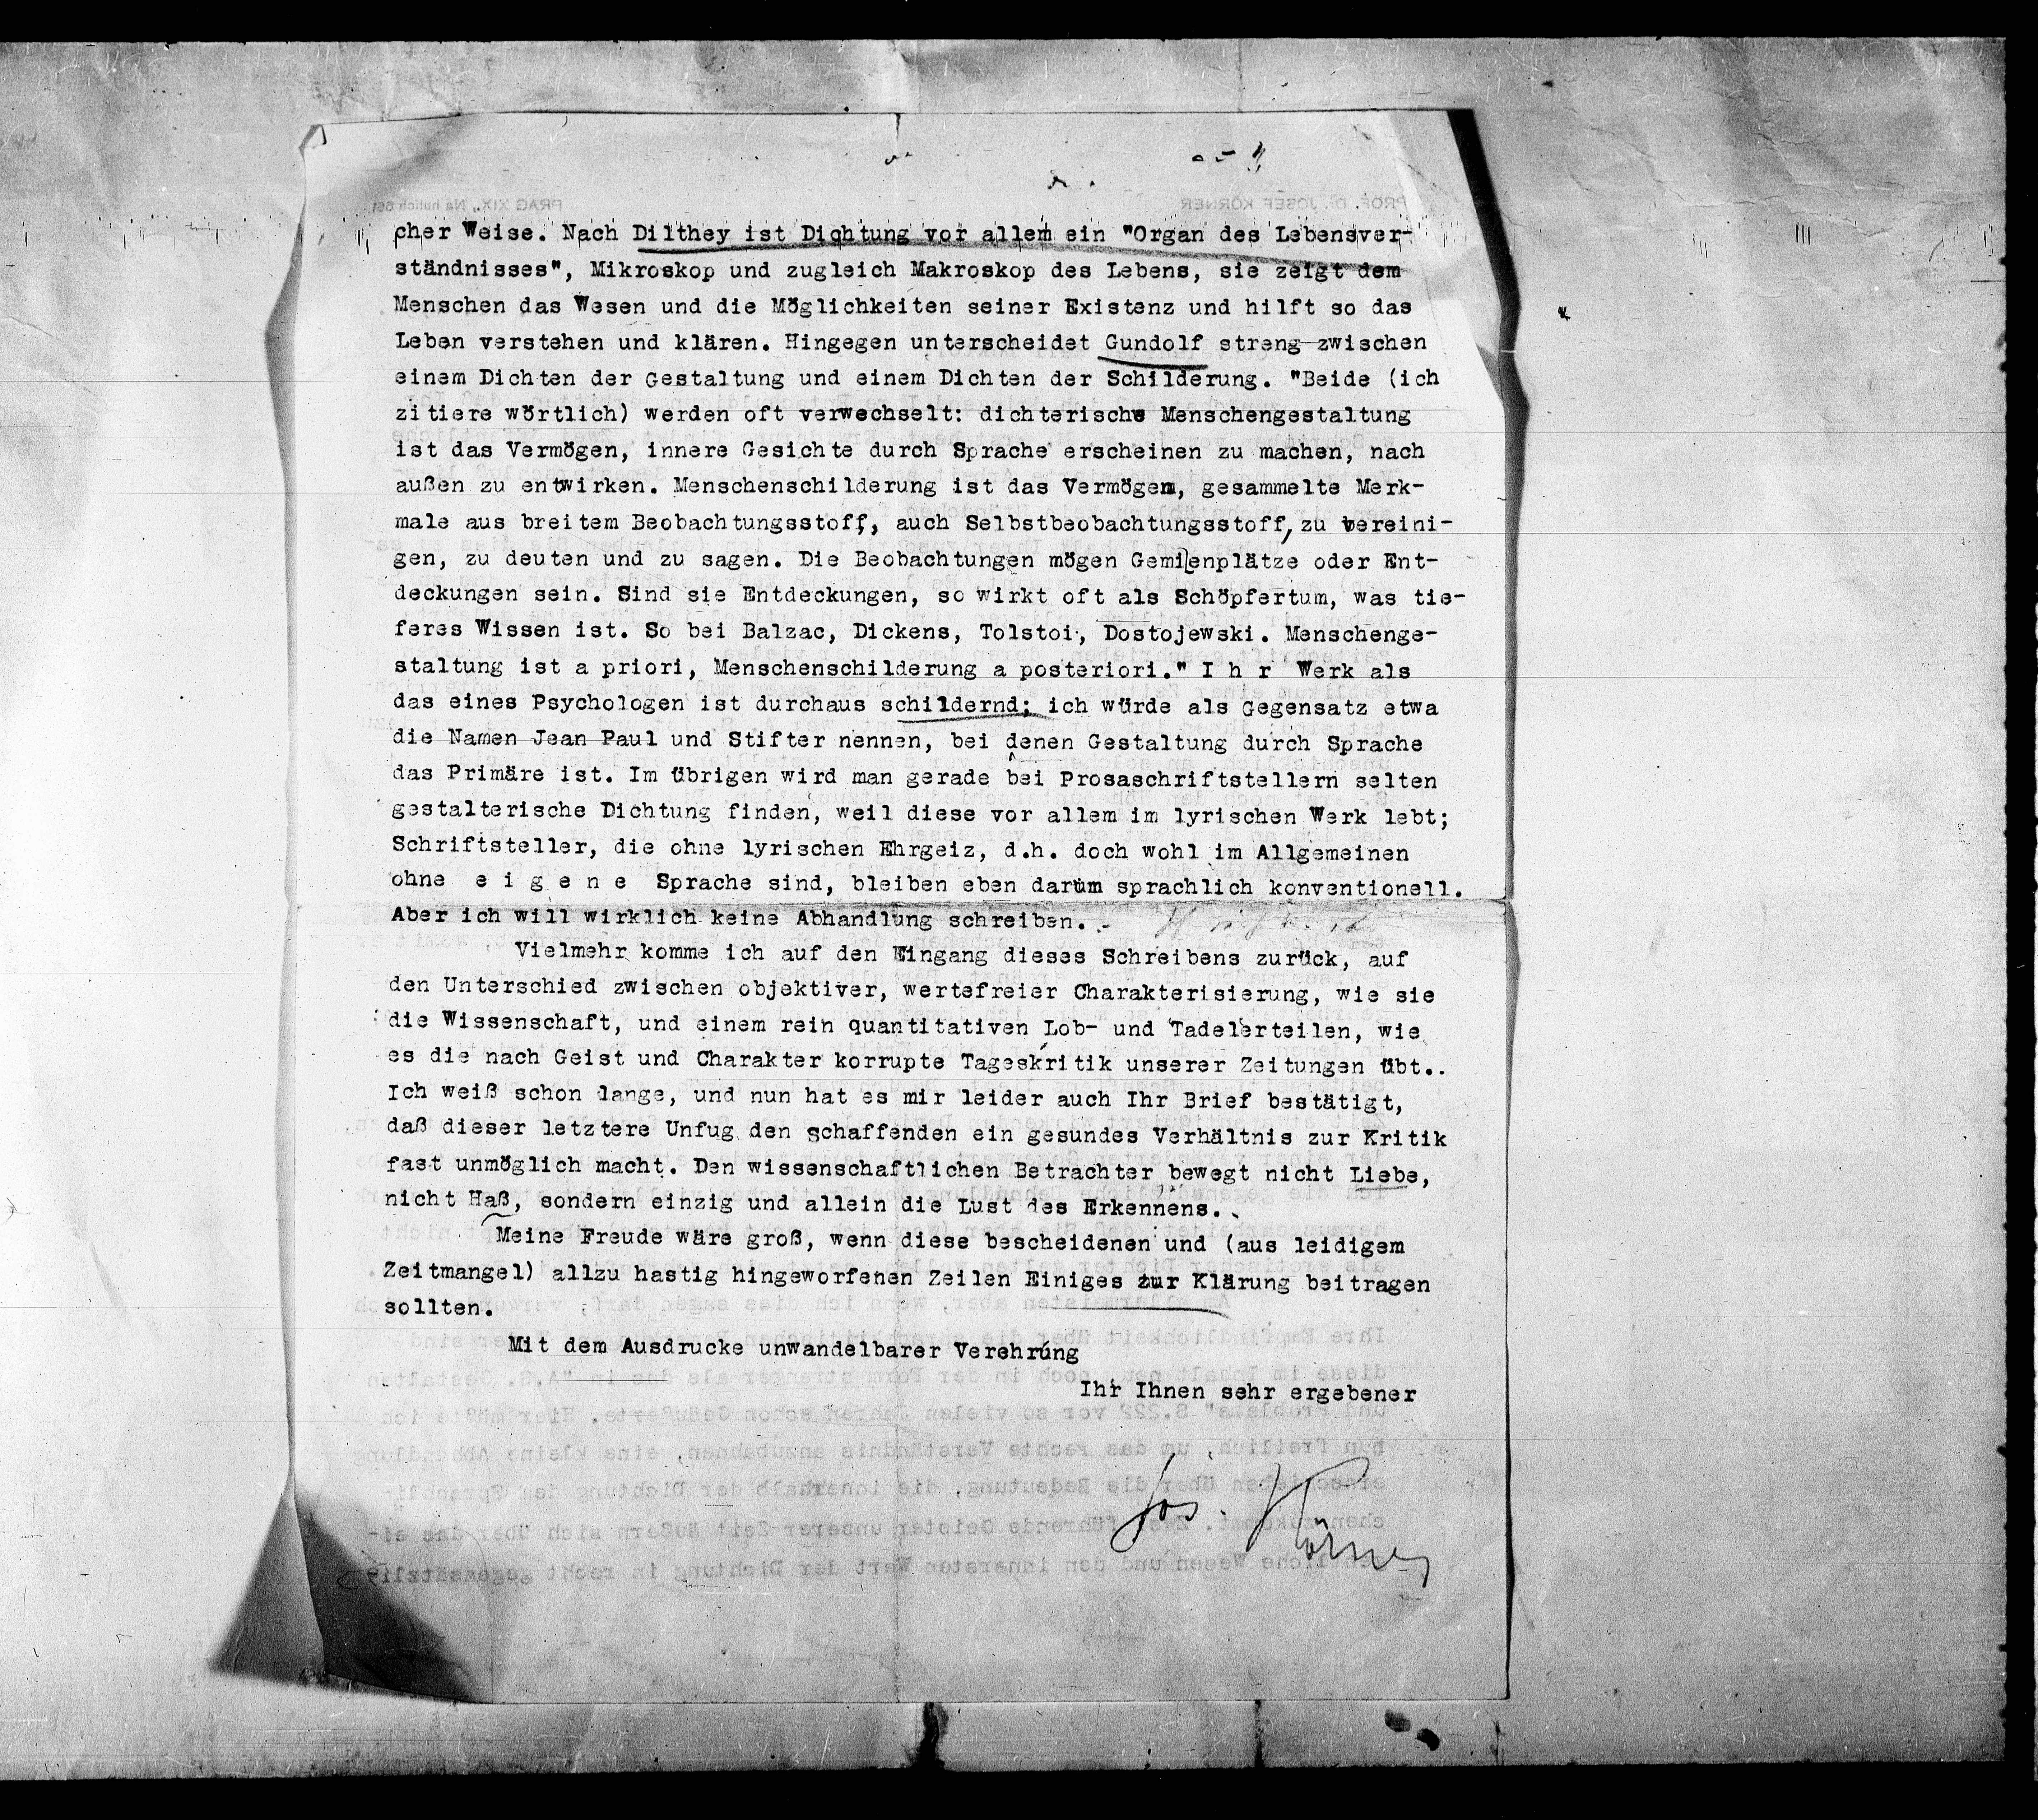 cher Weise. Nach Dilthey ist Dichtung vor allem ein "Organ des Lebensver-
ständnisses", Mikroskop und zugleich Makroskop des Lebens, sie zeigt dem
Menschen das Wesen und die Möglichkeiten seiner Existenz und hilft so das
Leben verstehen und klären. Hingegen unterscheidet Gundolf streng zwischen
einem Dichten der Gestaltung und einem Dichten der Schilderung. "Beide (ich
zitiere wörtlich) werden oft verwechselt: dichterische Menschengestaltung
ist das Vermögen, innere Gesichte durch Sprache erscheinen zu machen, nach
außen zu entwirken. Menschenschilderung ist das Vermögen, gesammelte Merk-
male aus breitem Beobachtungsstoff, auch Selbstbeobachtungsstoff, zu vereini-
gen, zu deuten und zu sagen. Die Beobachtungen mögen Gemienplätze oder Ent-
deckungen sein. Sind sie Entdeckungen, so wirkt oft als Schöpfertum, was tie-
feres Wissen ist. So bei Balzac, Dickens, Tolstoi, Dostojewski. Menschenge-
staltung ist a priori, Menschenschilderung a posteriori." I h r Werk als
das eines Psychologen ist durchaus schildernd; ich würde als Gegensatz etwa
die Namen Jean Paul und Stifter nennen, bei denen Gestaltung durch Sprache
das Primäre ist. Im übrigen wird man gerade bei Prosaschriftstellern selten
gestalterische Dichtung finden, weil diese vor allem im lyrischen Werk lebt;
Schriftsteller, die ohne lyrischen Ehrgeiz, d.h. doch wohl im Allgemeinen
ohne e i g e n e Sprache sind, bleiben eben darum sprachlich konventionell.
Aber ich will wirklich keine Abhandlung schreiben.-
Vielmehr komme ich auf den Eingang dieses Schreibens zurück, auf
den Unterschied zwischen objektiver, wertefreier Charakterisierung, wie sie
die Wissenschaft, und einem rein quantitativen Lob- und Tadelerteilen, wie
es die nach Geist und Charakter korrupte Tageskritik unserer Zeitungen übt..
Ich weiß schon lange, und nun hat es mir leider auch Ihr Brief bestätigt,
daß dieser letztere Unfug den schaffenden ein gesundes Verhältnis zur Kritik
fast unmöglich macht. Den wissenschaftlichen Betrachter bewegt nicht Liebe,
nicht Haß, sondern einzig und allein die Lust des Erkennens.
Meine Freude wäre groß, wenn diese bescheidenen und (aus leidigem
Zeitmangel) allzu hastig hingeworfenen Zeilen Einiges zur Klärung beitragen
sollten.
Mit dem Ausdrucke unwandelbarer Verehrung
Ihr Ihnen sehr ergebener
Jos. Körner